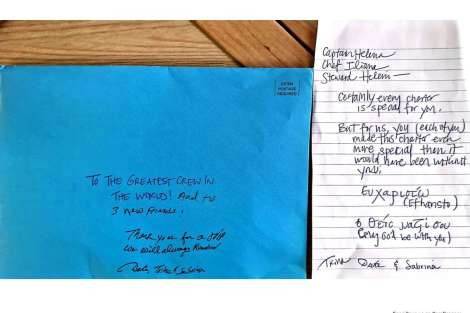 EXTRA
POSTAGE
REQUIRED
TO THE GREATEST CREW IN
THE WORLD! And to
3 new friends!
Thank you for a trip
we will always
Captain Helena
Chef Iliana
Steward Helein —
Certainly every charter
is special for you.
But for us, you (each of you)
made this charter even
more special then it
would have been without
you.
Ευχαριστώ
(Efharisto)
Ο Θεός μαζί σου
(may God be with you)
Trina Dave & Sabrina